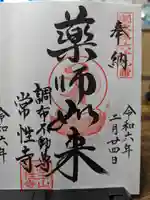 奉納
薬師如来
令和六年
二月廿四日
調布不動尊
常性寺
令和六年